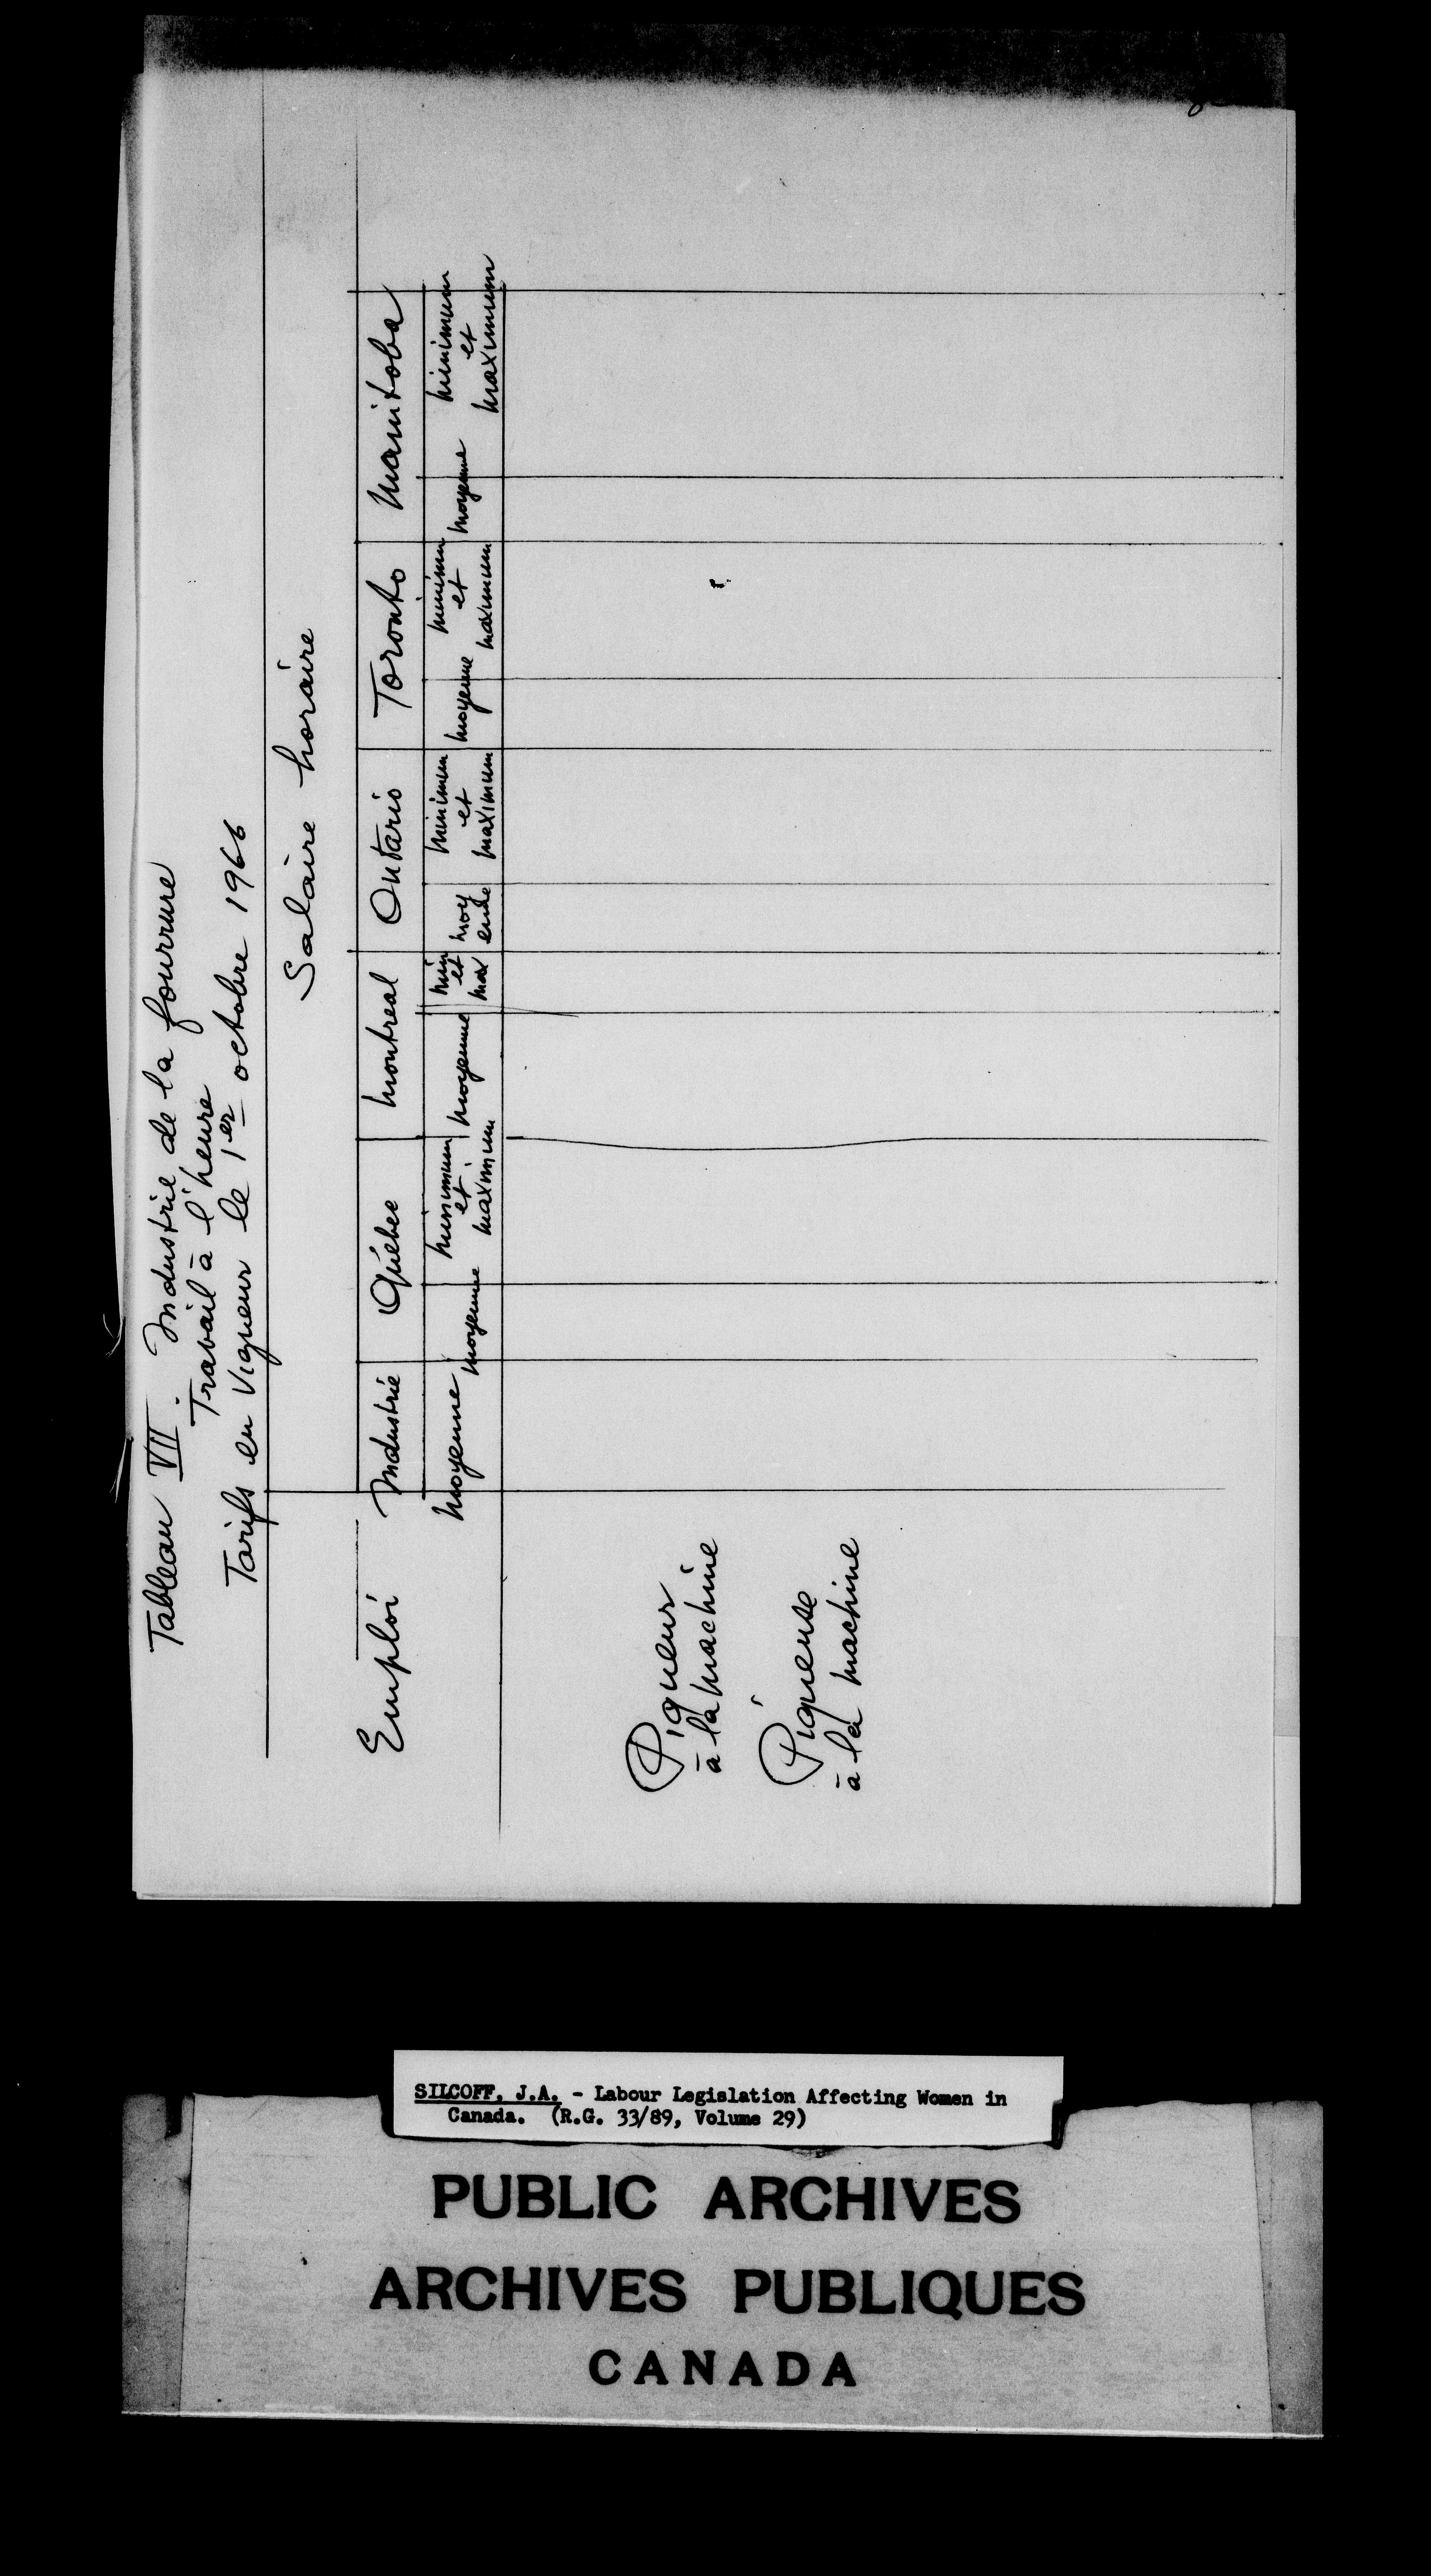 Tableau VII. Industrie de la fourrure
Travail à l'heure
Tarifs en vigueur le 1er octobre 1966
Salaire horaire
Emploi Industrie Québec Montreal Ontario Toronto Manitoba
moyenne moyenne minimum et maximum moyenne min et max moyenne minimum et maximum moyenne minimum et maximum moyenne minimum et maximum
Piqueur
à la machine
Piqueuse
à la machine
SILCOFF, J.A. - Labour Legislation Affecting Women in
Canada. (R.G. 33/89, Volume 29)
PUBLIC ARCHIVES
ARCHIVES PUBLIQUES
CANADA